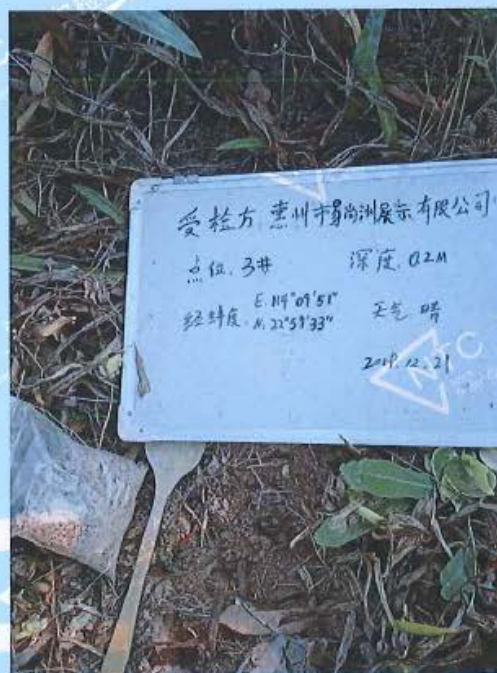 受检方:惠州市昇尚洲展示有限公司
点位:3# 深度:0.2M
经纬度:E:114°09'51"
N:22°59'33"
天气 晴
2019.12.21
NTC